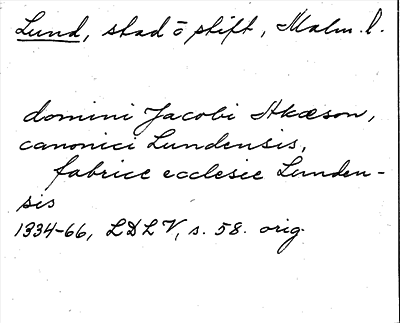 Lund, stad o stift, Malm. l.
domini Jacobi Akæson,
canonici Lundensis,
fabrice ecclesie Lunden-
sis
1334-66, LDLV, s. 58. orig.